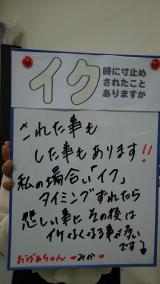 イク
時に寸止め
されたこと
ありますか
された事も
した事もあります!!
私の場合"イク"
タイミングずれたら
悲しい事に その後は
イケなくなる事が多い
です
おかあちゃん
みか